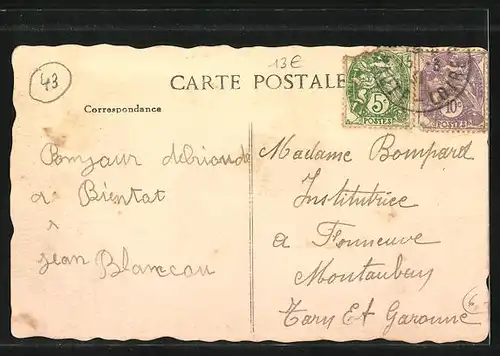 43
13€
CARTE POSTALE
5c
POSTES
10c
POSTES
Correspondance
Bonjour
a Bientat
Jean Blancou
Madame Bompard
Institutrice
a Fonneuve
Montauban
Tarn Et Garonne